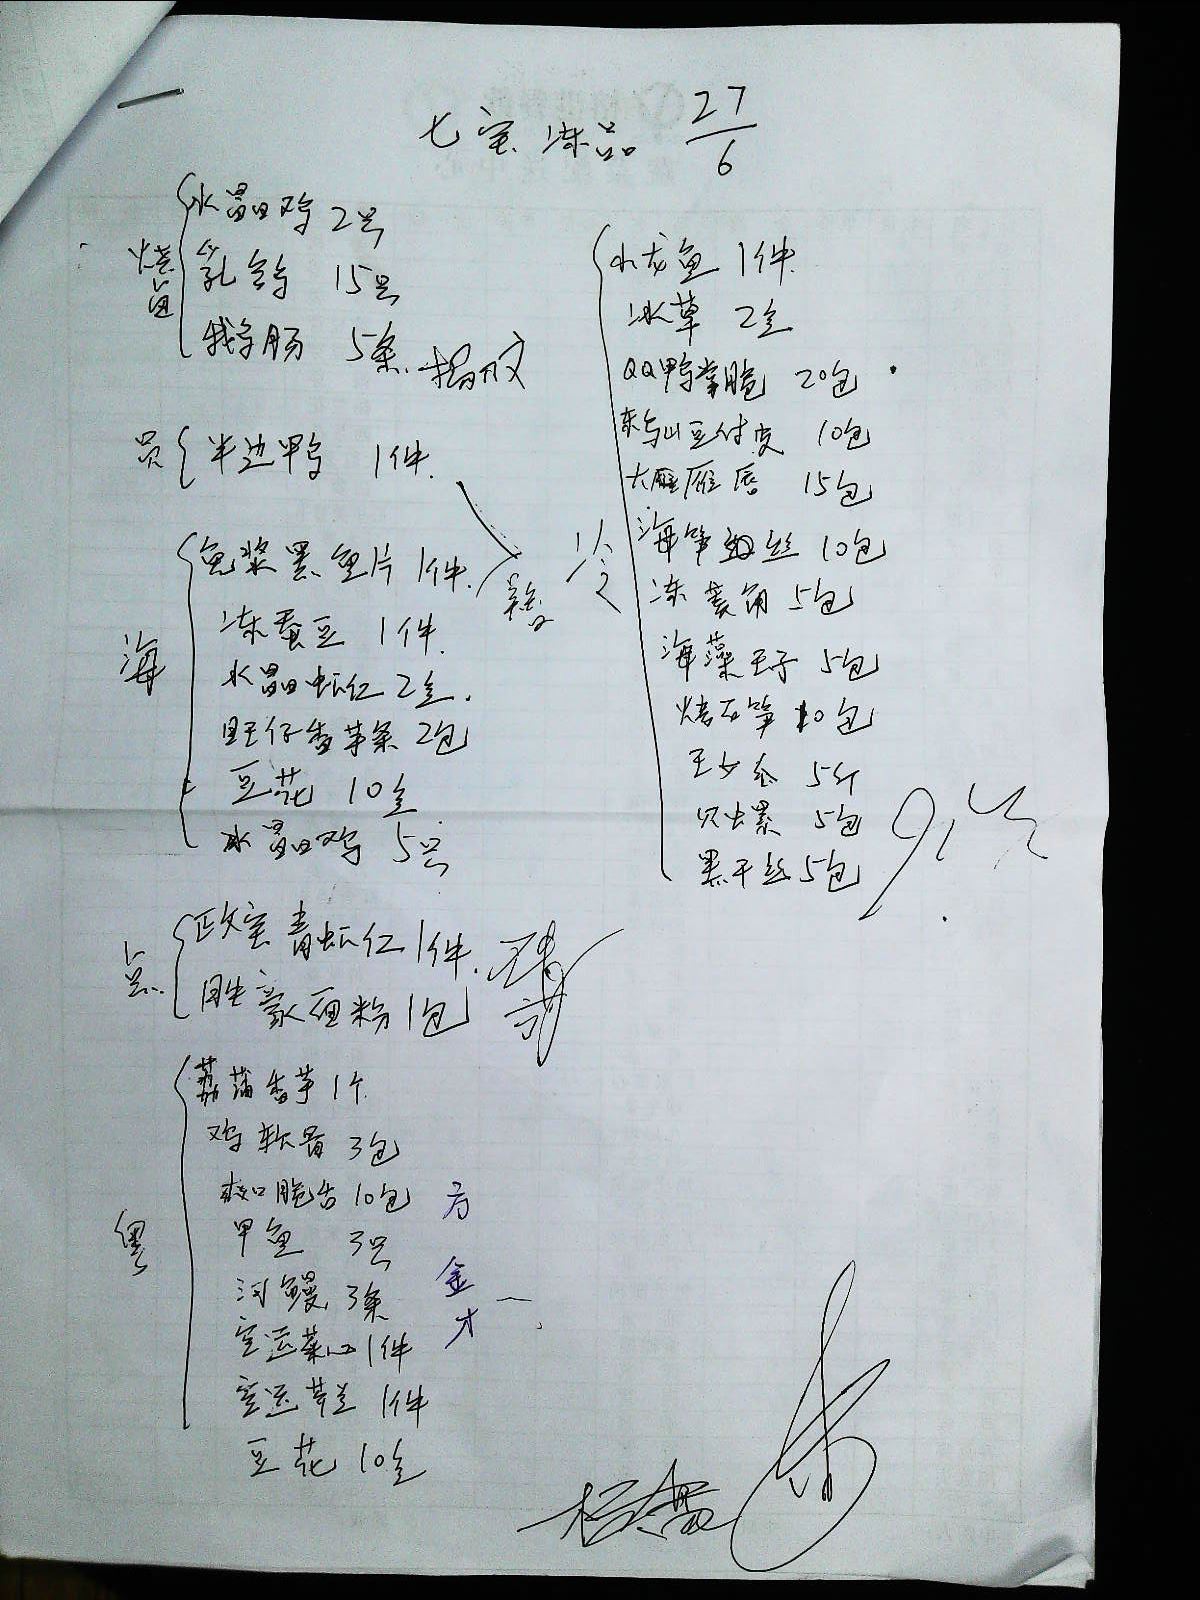 七宝冻品 27/6
烧卤
水晶鸡 2只
乳鸽 15只
鹅肠 5条
员
半边鸭 1件
海
鱼浆黑鱼片 1件
冻蚕豆 1件
水晶虾仁 2盒
旺仔香芋条 2包
豆花 10盒
水晶鸡 5只
点
青虾仁 1件
面粉 1包
粤
荔蒲香芋 1个
鸡软骨 3包
爽口脆 10包
甲鱼 3只
河鳗 3条
空运菜心 1件
空运芥兰 1件
豆花 10盒
方金才
冷
水龙鱼 1件
冰草 2盒
QQ鸭掌脆 20包
豆付皮 10包
大雁唇 15包
海笋丝 10包
冻菱角 5包
海藻王子 5包
烤石笋 10包
5斤
贝螺 5包
黑干丝 5包